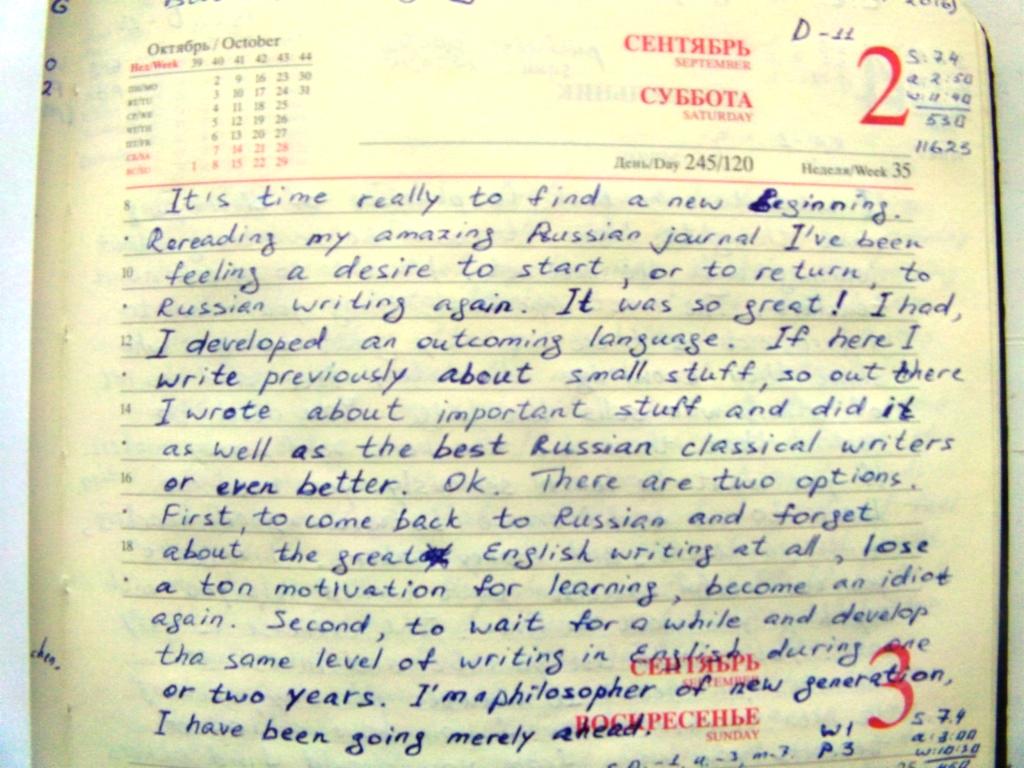 2016)
Октябрь / October
Нед/Week 39 40 41 42 43 44
ПН/MO 2 9 16 23 30
ВТ/TU 3 10 17 24 31
СР/WE 4 11 18 25
ЧТ/TH 5 12 19 26
ПТ/FR 6 13 20 27
СБ/SA 7 14 21 28
ВС/SU 1 8 15 22 29
СЕНТЯБРЬ
SEPTEMBER
СУББОТА
SATURDAY
D-11
2
S: 7.4
a: 2:50
w: 11:40
530
11623
День/Day 245/120 Неделя/Week 35
8 It's time really to find a new Beginning.
Rereading my amazing Russian journal I've been
10 feeling a desire to start, or to return, to
Russian writing again. It was so great! I had,
12 I developed an outcoming language. If here I
write previously about small stuff, so out there
14 I wrote about important stuff and did it
as well as the best Russian classical writers
16 or even better. Ok. There are two options.
First, to come back to Russian and forget
18 about the great English writing at all, lose
a ton motivation for learning, become an idiot
again. Second, to wait for a while and develop
tha same level of writing in English during one
or two years. I'm a philosopher of new generation,
I have been going merely ahead.
СЕНТЯБРЬ
SEPTEMBER
ВОСКРЕСЕНЬЕ
SUNDAY
3
W1
P.3
S: 7.4
a: 3:00
w: 10:30